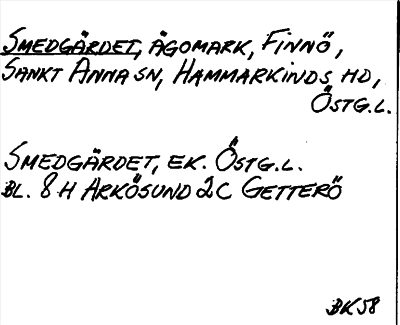 SMEDGÄRDET, ÄGOMARK, FINNÖ,
SANKT ANNA SN, HAMMARKINDS HD,
ÖSTG.L.
SMEDGÄRDET, EK. ÖSTG.L.
BL. 8 H ARKÖSUND 2C GETTERÖ
BK58